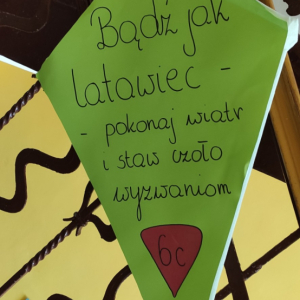 Bądź jak
latawiec -
- pokonaj wiatr
i staw czoło
wyzwaniom
6c